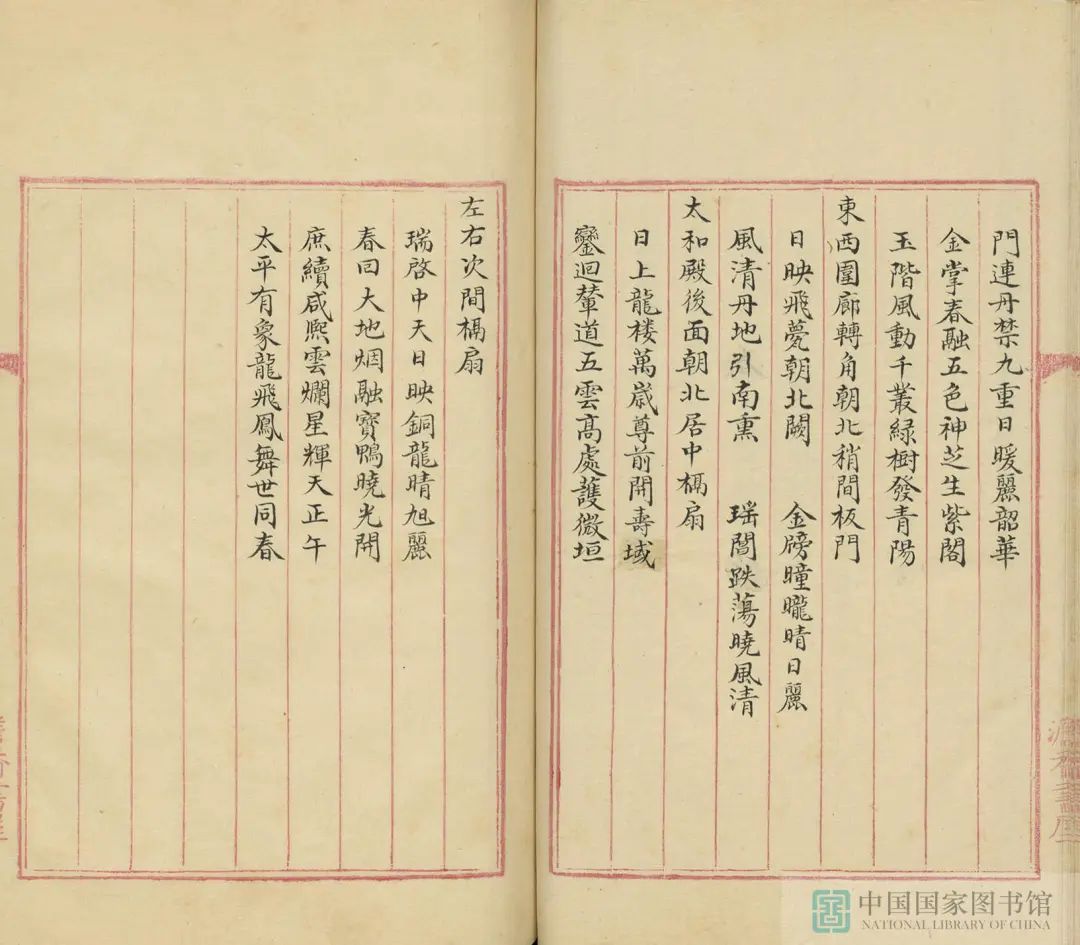 門連丹禁九重日暖麗韶華
金掌春融五色神芝生紫閣
玉階風動千叢緑樹發青陽
東西圍廊轉角朝北稍間板門
日映飛甍朝北闕　金牓曈曨晴日麗
風清丹地引南熏　瑶閶跌蕩曉風清
太和殿後面朝北居中槅扇
日上龍楼萬歲尊前開壽域
鑾迴輦道五雲高處護微垣
左右次間槅扇
瑞啓中天日映銅龍晴旭麗
春回大地烟融寳鴨曉光開
庶續咸熈雲爛星輝天正午
太平有象龍飛鳳舞世同春
中国国家图书馆
NATIONAL LIBRARY OF CHINA